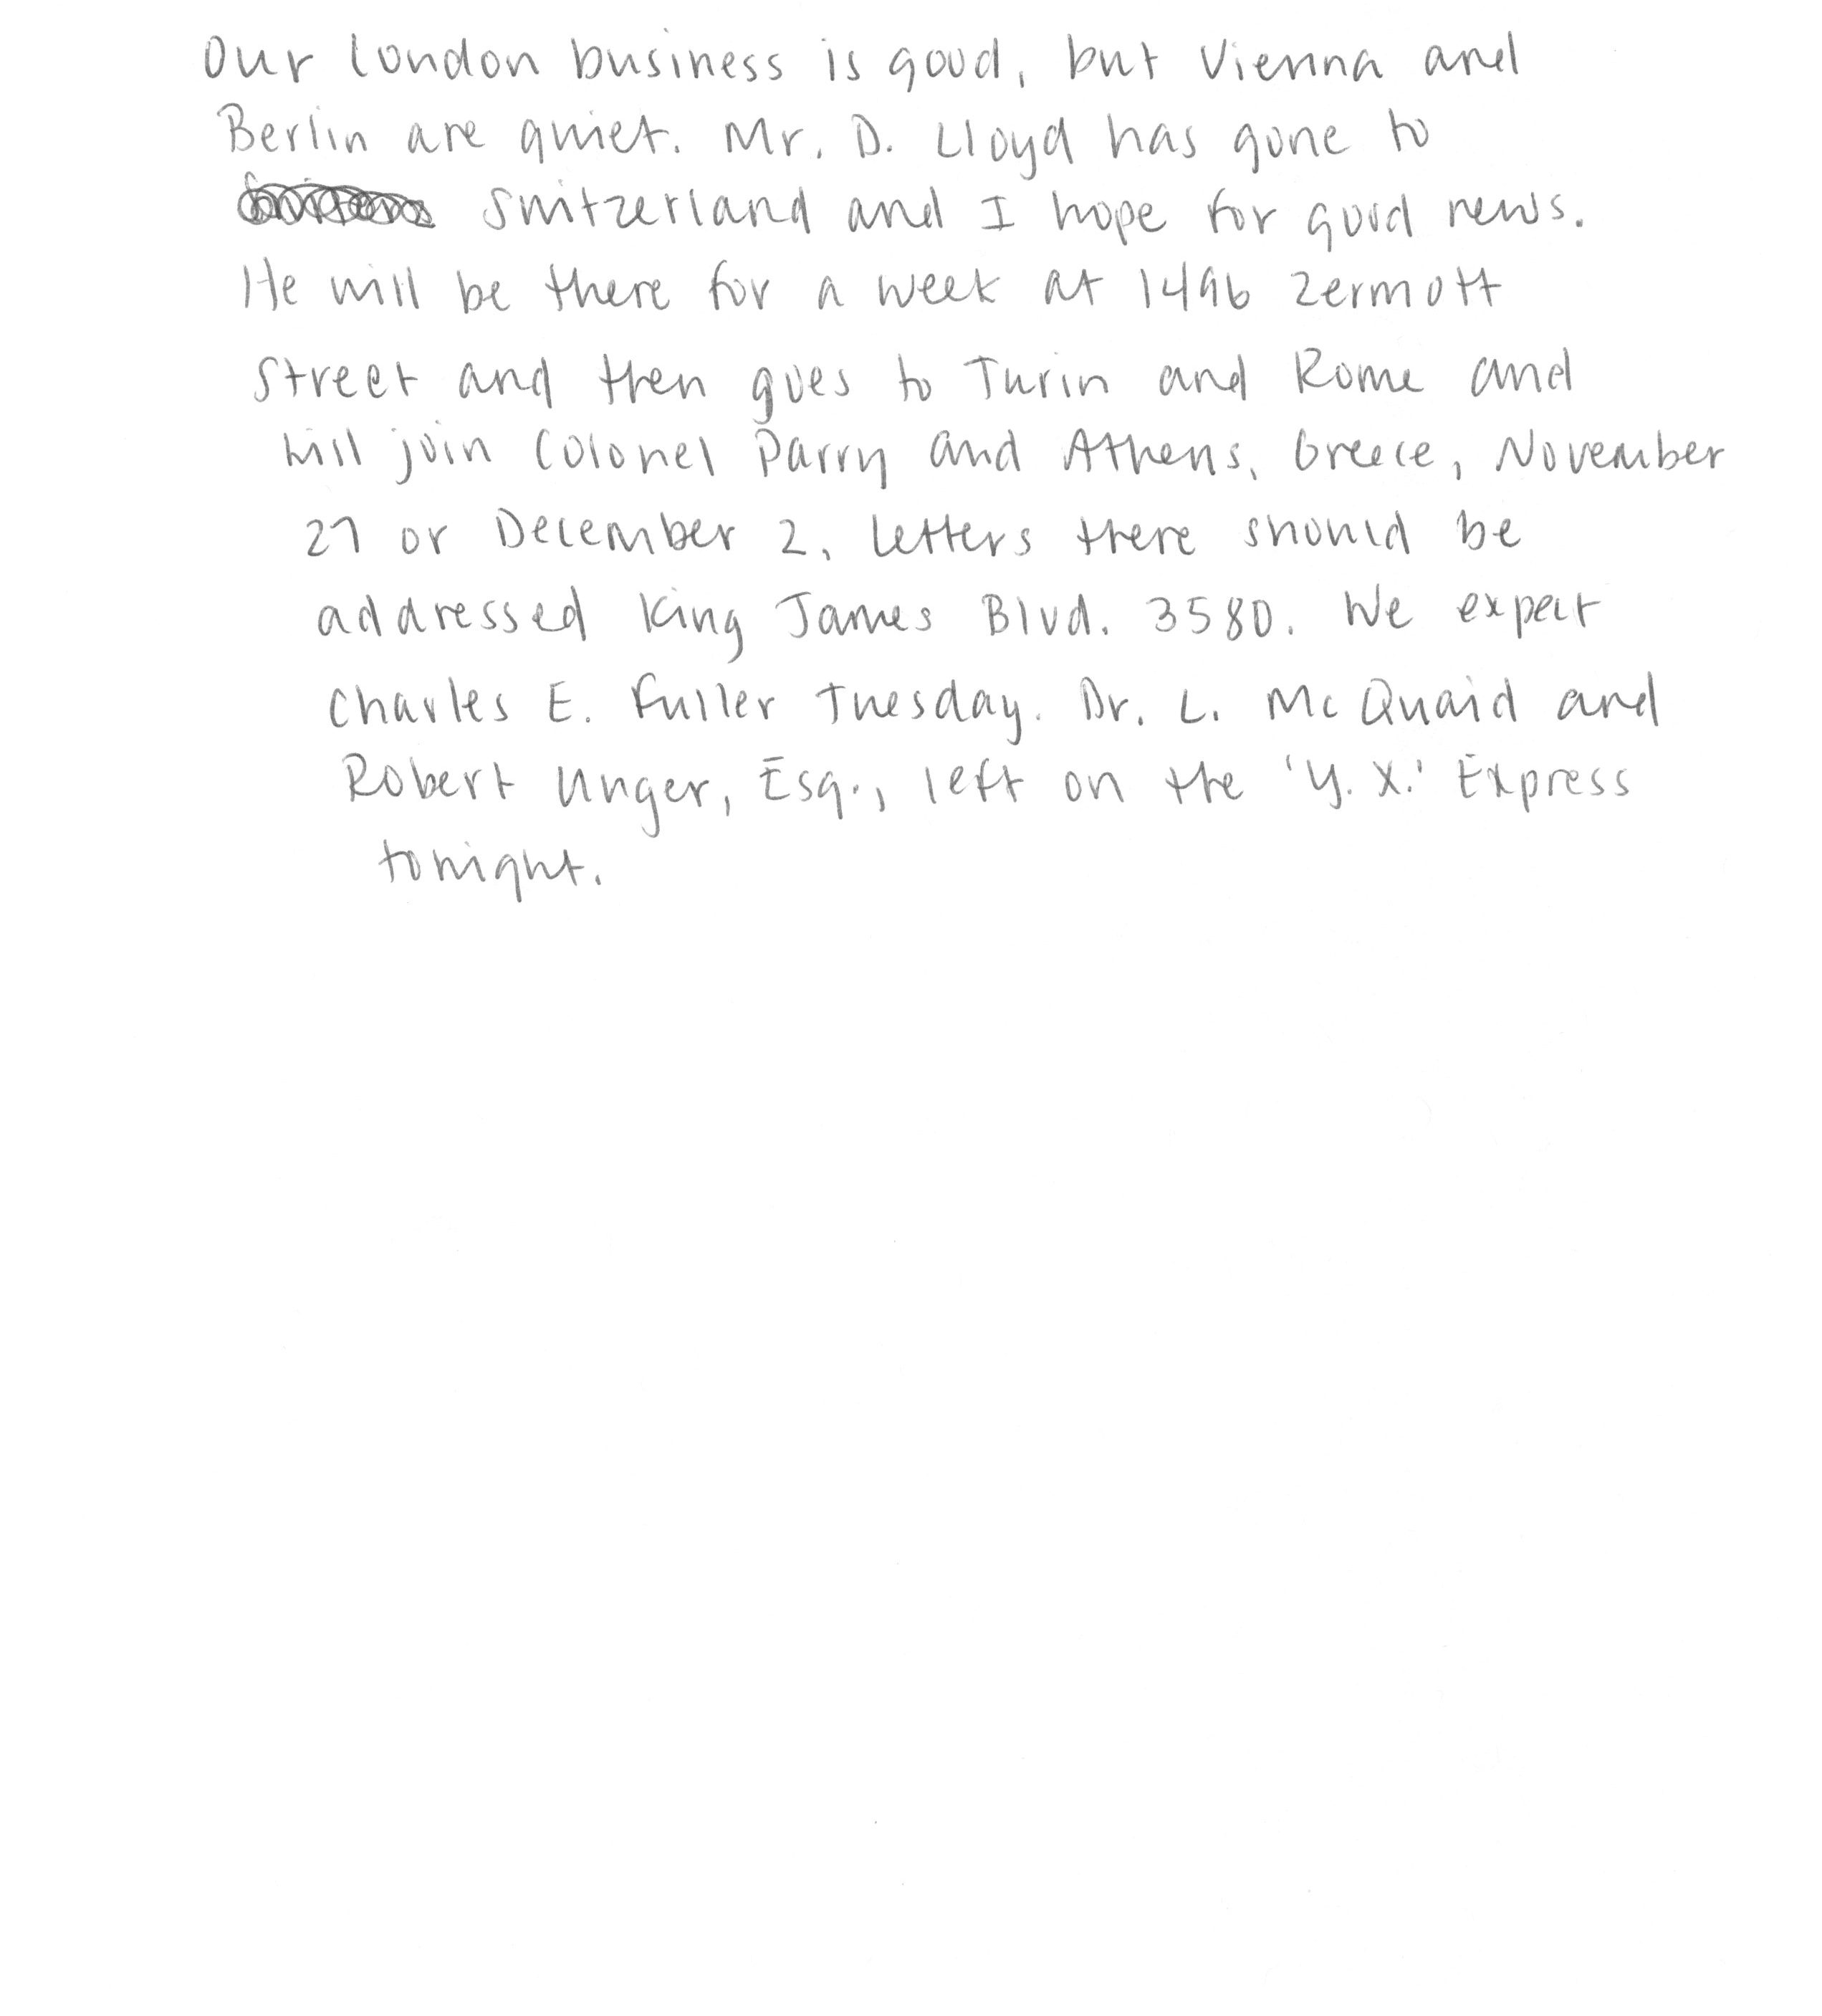 Our London business is good, but Vienna and
Berlin are quiet. Mr. D. Lloyd has gone to
Switzerland and I hope for good news.
He will be there for a week at 1496 Zermott
Street and then goes to Turin and Rome and
will join Colonel Parry and Athens, Greece, November
27 or December 2. Letters there should be
addressed King James Blvd. 3580. We expect
Charles E. Fuller Tuesday. Dr. L. McQuaid and
Robert Unger, Esq., left on the 'Y.X.' Express
tonight.